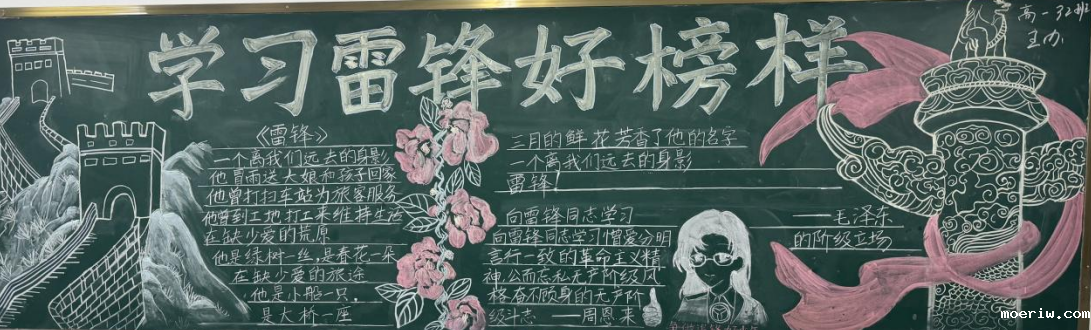 学习雷锋好榜样
高一32班
主办
《雷锋》
一个离我们远去的身影
他冒雨送大娘和孩子回家
他曾打扫车站为旅客服务
他曾到工地打工来维持生活
在缺少爱的荒原
他是绿树一丝,是春花一朵
在缺少爱的旅途
他是小船一只,
是大桥一座
三月的鲜花芳香了他的名字
一个离我们远去的身影
雷锋!
向雷锋同志学习
——毛泽东
向雷锋同志学习憎爱分明
的阶级立场
言行一致的革命主义精
神,公而忘私无产阶级风
格奋不顾身的无产阶
级斗志 ——周恩来
moeriw.com